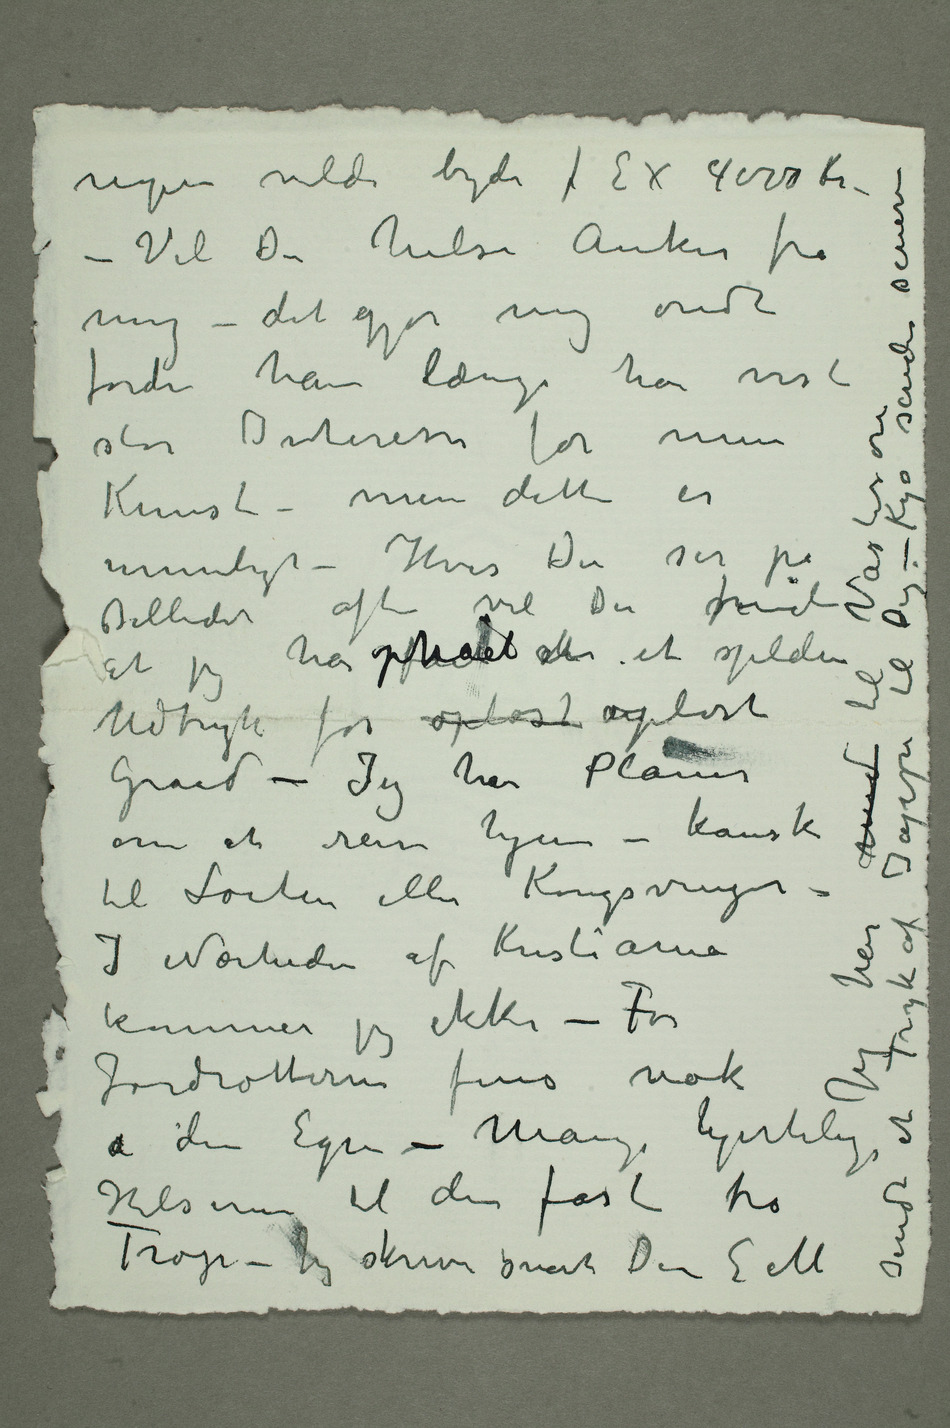 nogen vilde byde f EX 4000 Kr –
– Vil Du hilse Anker fra
mig – det gjør mig ondt
fordi han længe har vist
stor Interesse for min
Kunst – men dette er
umuligt – Hvis Du ser på
Billedet ofte vil Du finde
at jeg har opnået et sjelden
Udtryk for opløst opløst
Graad – Jeg har Planer
om at reise hjem – kanske
til Løiten eller Kongsvinger –
I Nærheden af Kristiania
kommer jeg ikke – For
Jordrotterne fins nok
i den Egn – Mange hjertelige
Hilsener til den fast tro
Trop – Jeg skriver snart Din E M
Jeg har sendt til Vas
sendt et Tryk af Jappe til Dig – Kys sendes senere